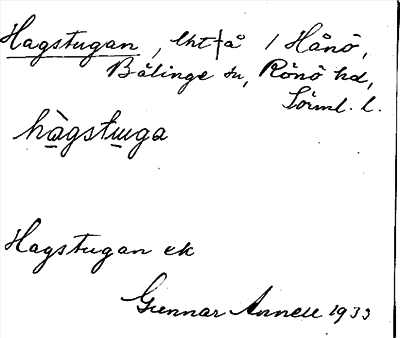 Hagstugan, lht † å / Hånö,
Bälinge sn, Rönö hd,
Sörml. l.
hàgstuga
Hagstugan ek
Gunnar Annell 1933